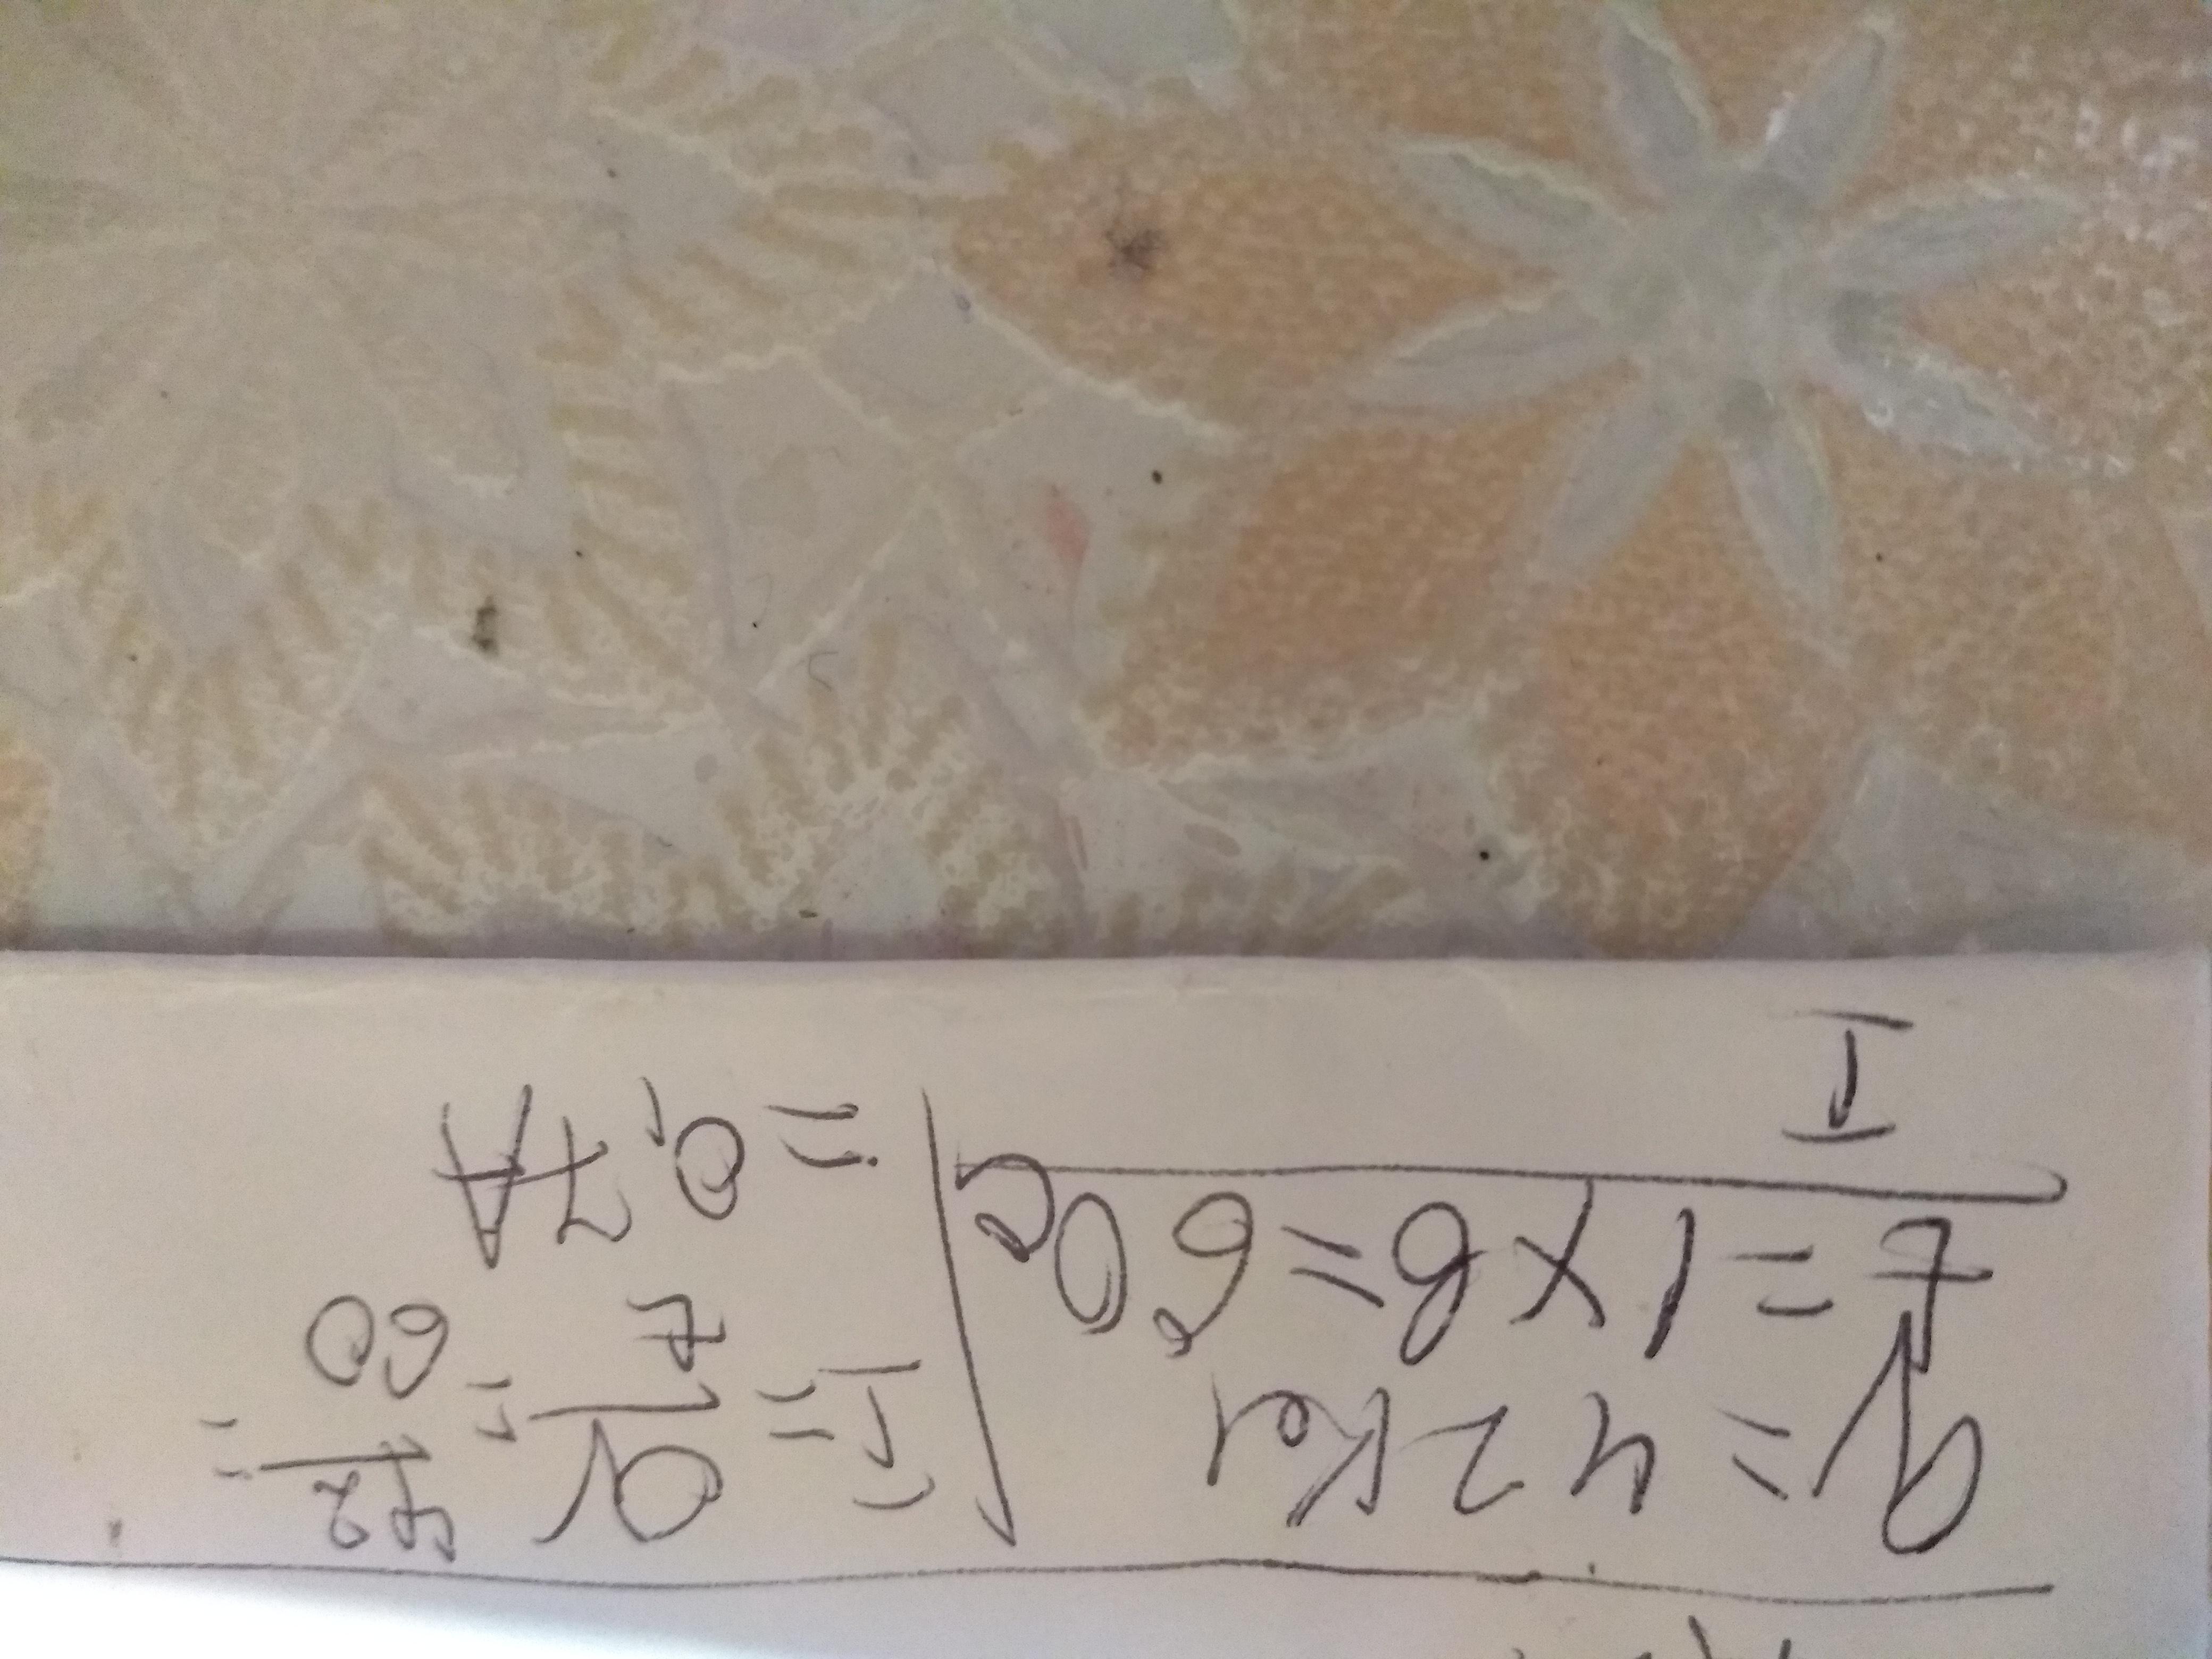 q = 42 Кл
t = 1 хв = 60 с
I
I = q/t = 42/60 =
= 0,7А